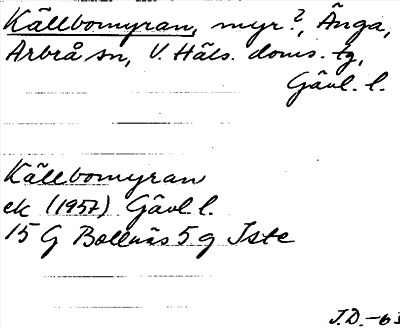 Källbomyran, myr?, Änga,
Arbrå sn, V. Häls. doms. tg,
Gävl. l.
Källbomyran
ek (1957) Gävl. l.
15 G Bollnäs 5 g Iste
J.D.-63